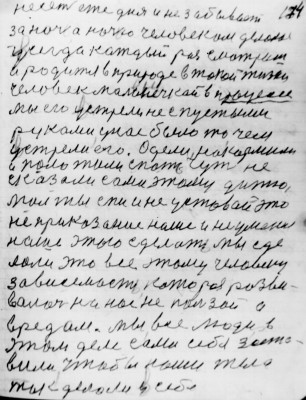 174
несет сте дня и не забывает
за ночь а ночь человеком делает
всегда каждый раз смотрит
а родится в природе в такой жизни
человек маленький в процессе
мы его встрели не с пустыми
руками у нас было то чем
встрели его. Одели, накормили
и положили спать чуть не
сказали сами этому дитю,
мол ты спи и не уставай это
не приказание наше и не умение
наше этого сделать мы сде
лали это все этому человеку
зависемость которая разви
валась на нас не пользой а
вредам. мы все люди в
этом деле сами себя заста
вили чтобы наши тела
так делали в себе